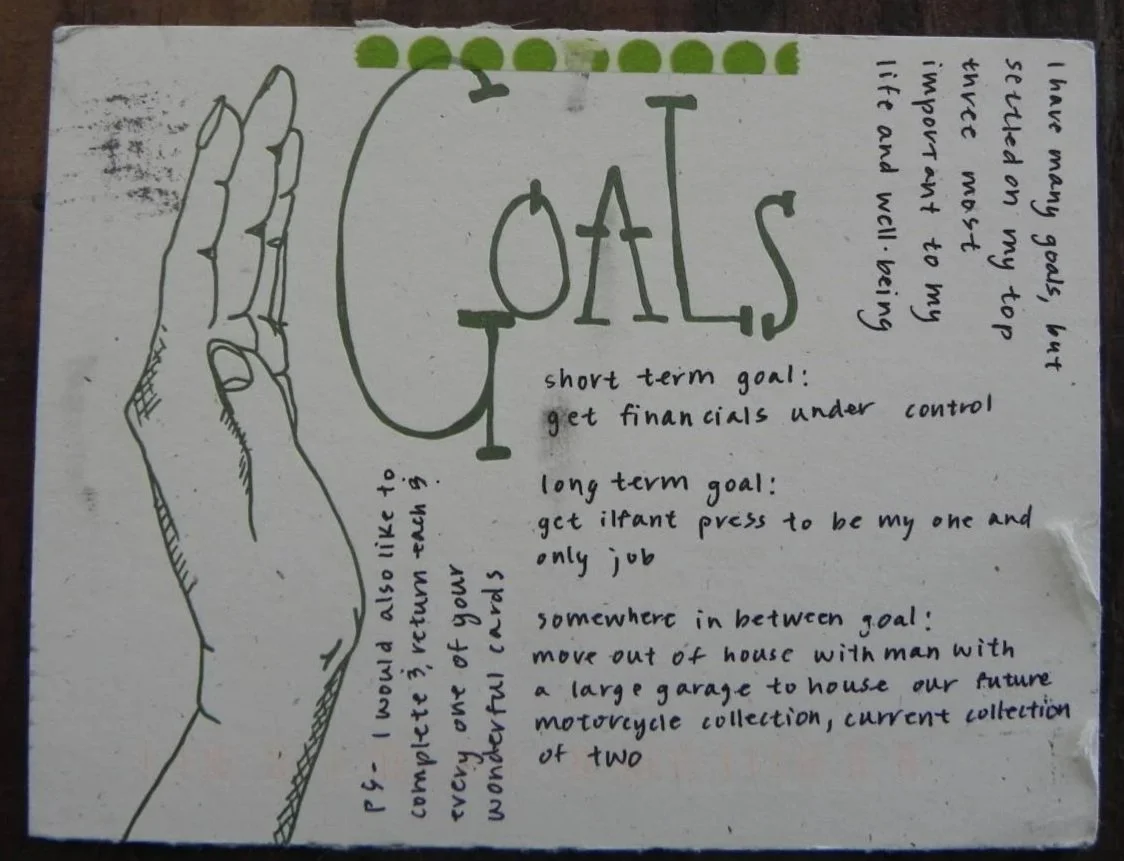 GOALS
I have many goals, but
settled on my top
three most
important to my
life and well-being
short term goal:
get financials under control
long term goal:
get ilfant press to be my one and
only job
somewhere in between goal:
move out of house with man with
a large garage to house our future
motorcycle collection, current collection
of two
PS- I would also like to
complete & return each &
every one of your
wonderful cards